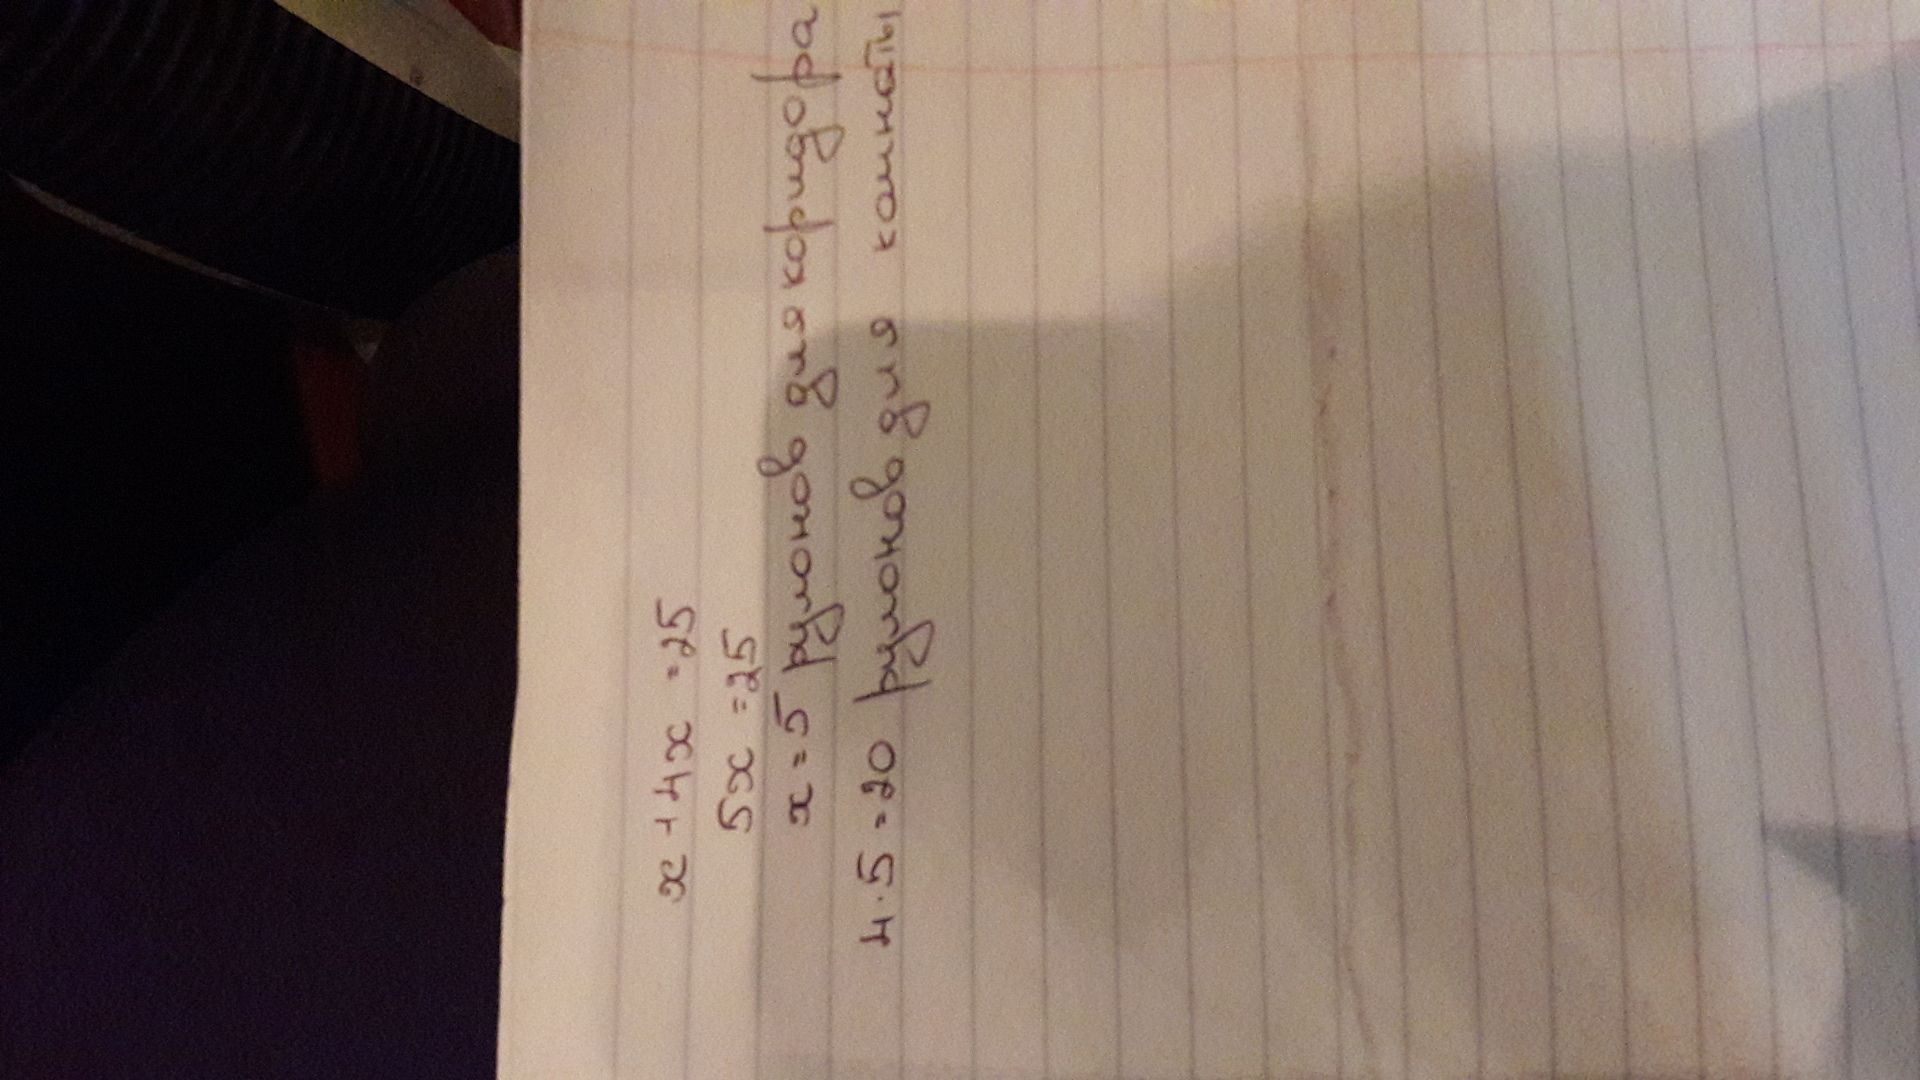 x + 4x = 25
5x = 25
x = 5 рулонов для коридора
4 · 5 = 20 рулонов для комнаты